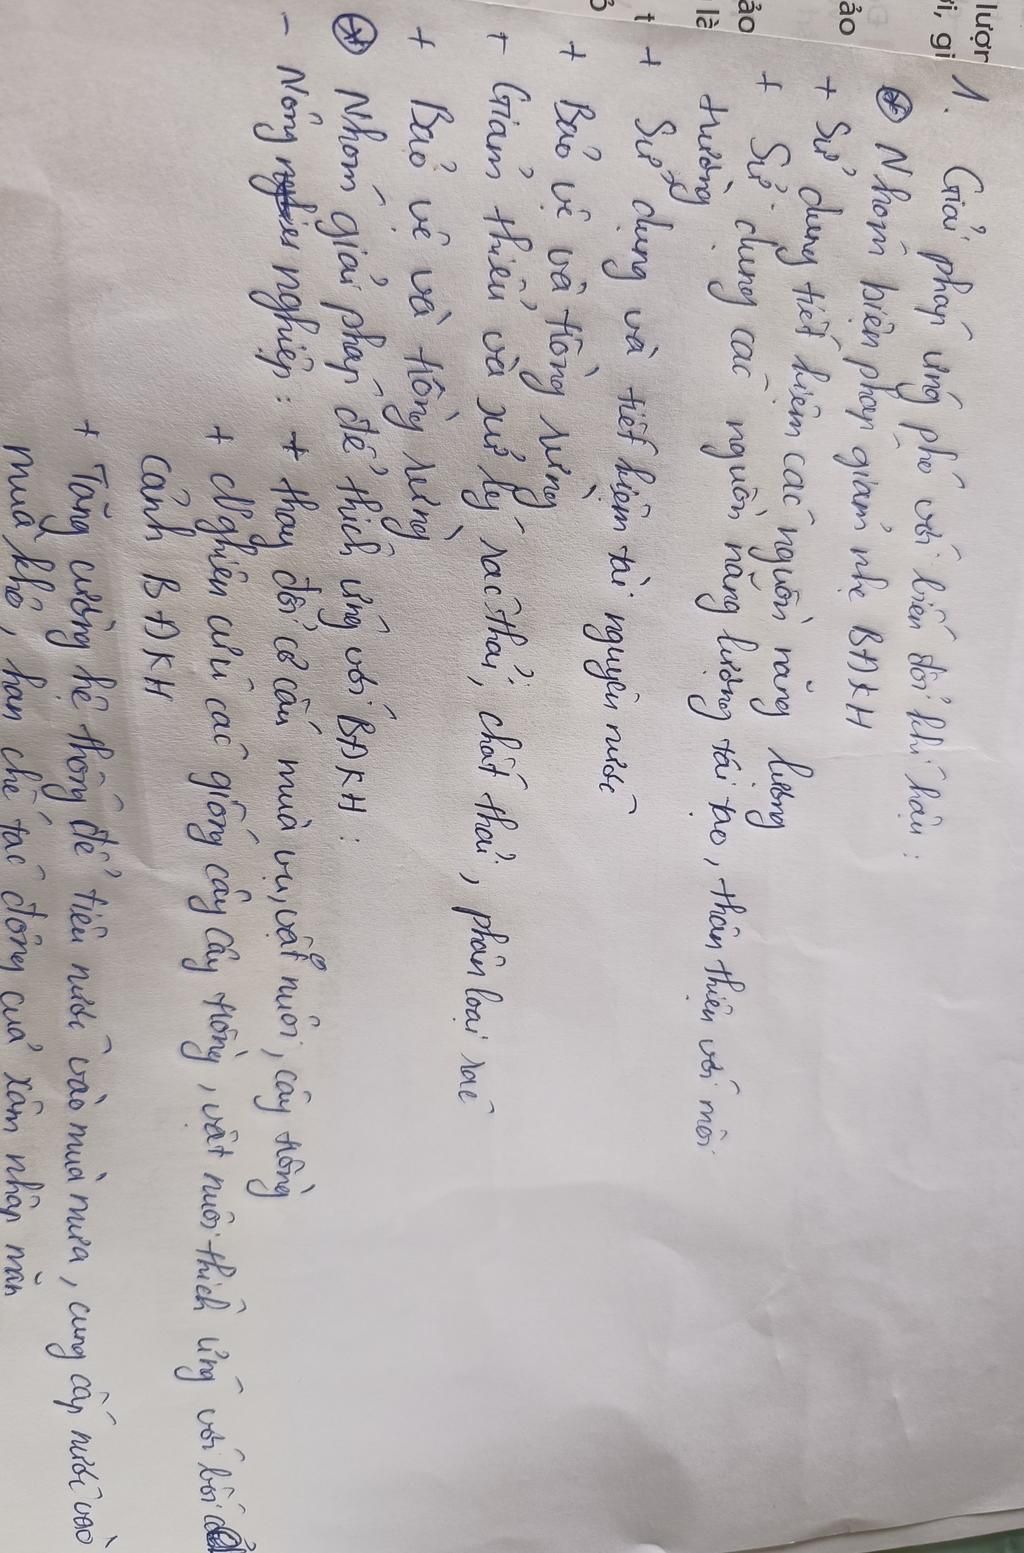 lượn
ới, gi
ảo
ảo
là
t
1. Giải pháp ứng phó với biến đổi khí hậu:
* Nhóm biện pháp giảm nhẹ BĐKH
+ Sử dụng tiết kiệm các nguồn năng lượng
+ Sử dụng các nguồn năng lượng tái tạo, thân thiện với môi
trường
+ Sử dụng và tiết kiệm tài nguyên nước
+ Bảo vệ và trồng rừng
+ Giảm thiểu và xử lý rác thải, chất thải, phân loại rác
+ Bảo vệ và trồng rừng
* Nhóm giải pháp để thích ứng với BĐKH:
- Nông nghiệp: + thay đổi cơ cấu mùa vụ, vật nuôi, cây trồng
+ Nghiên cứu các giống cây cây trồng, vật nuôi thích ứng với bối
cảnh BĐKH
+ Tăng cường hệ thống để tiêu nước vào mùa mưa, cung cấp nước vào
mùa khô, hạn chế tác động của xâm nhập mặn